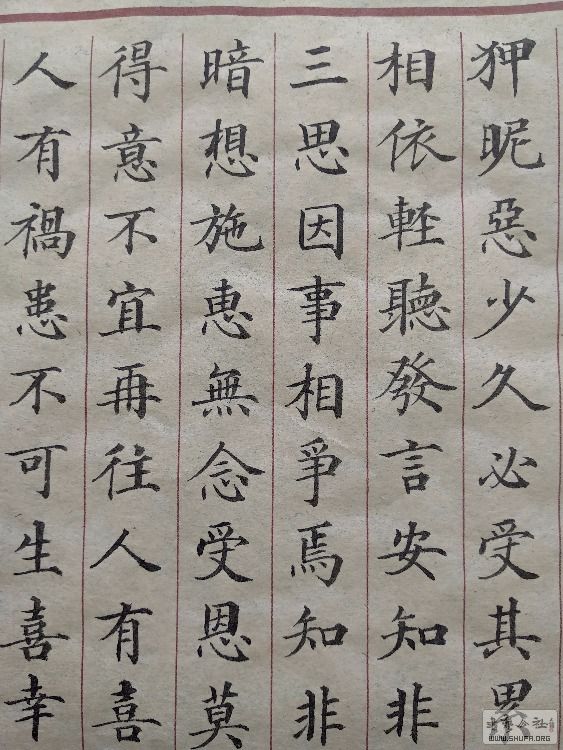 狎昵惡少久必受其累
相依軽聽發言安知非
三思因事相爭焉知非
暗想施恵無念受恩莫
得意不宜再往人有喜
人有禍患不可生喜幸
WWW.SHUFA.ORG